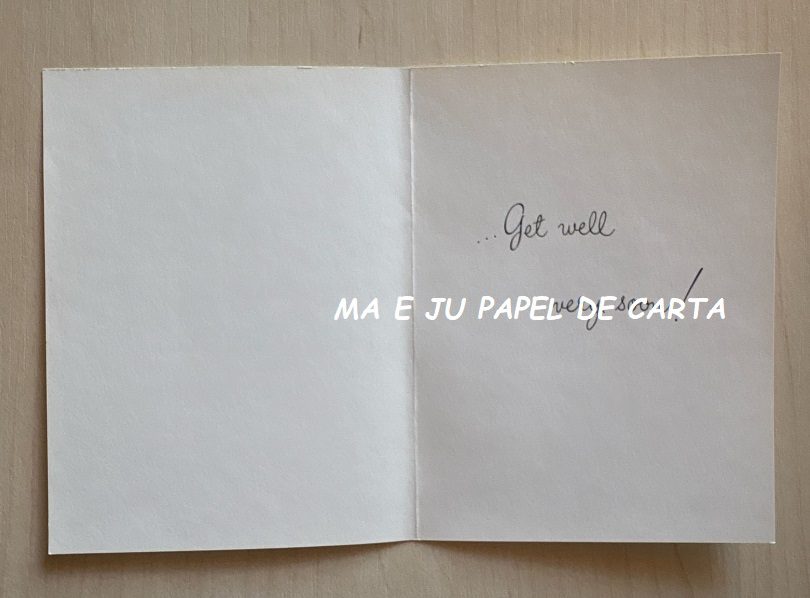 ...Get well
very soon!
MA E JU PAPEL DE CARTA